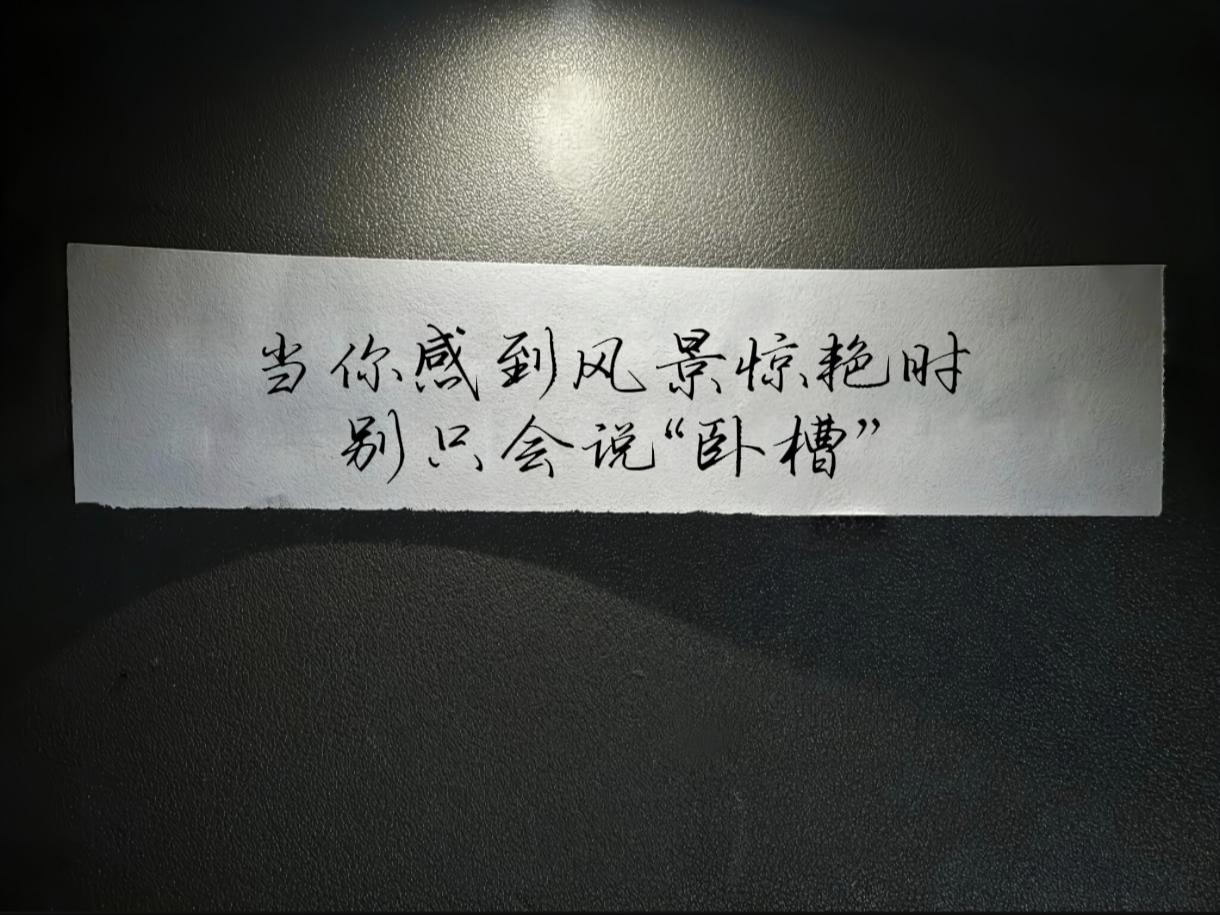 当你感到风景惊艳时
别只会说“卧槽”